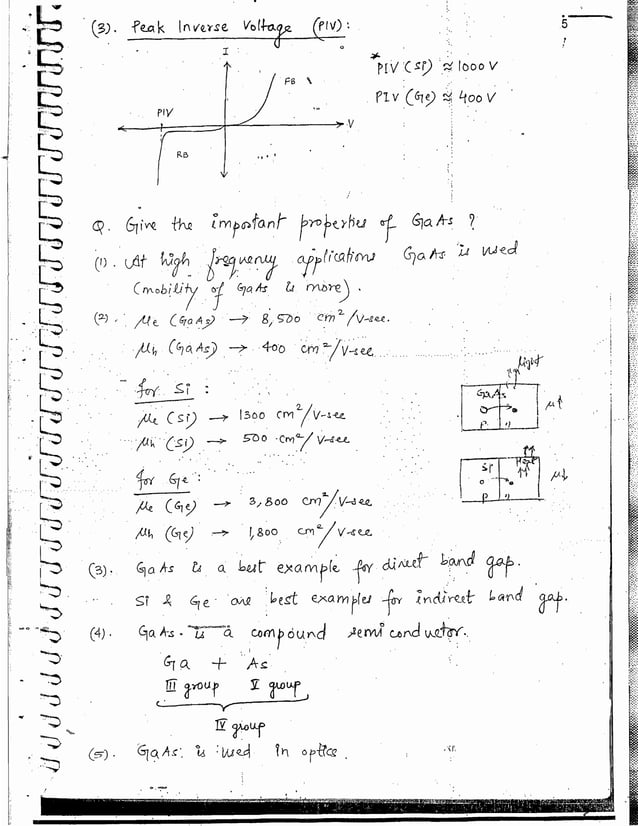 5
(3). Peak Inverse Voltage (PIV):
I
FB
PIV
V
RB
*PIV (Si) ≈ 1000 V
PIV (Ge) ≈ 400 V
Q. Give the important properties of GaAs ?
(1). At high frequency applications GaAs is used
(mobility of GaAs is more).
(2). μe (GaAs) → 8,500 cm²/V-sec.
μh (GaAs) → 400 cm²/V-sec
for Si :
μe (Si) → 1300 cm²/V-sec
μh (Si) → 500 cm²/V-sec
light
GaAs
P n
μ↑
Si
Heat
P n
μ↓
for Ge :
μe (Ge) → 3,800 cm²/V-sec
μh (Ge) → 1,800 cm²/V-sec
(3). GaAs is a best example for direct band gap.
Si & Ge are best examples for indirect band gap.
(4). GaAs is a compound semiconductor.
Ga + As
III group V group
IV group
(5). GaAs is used in optics.